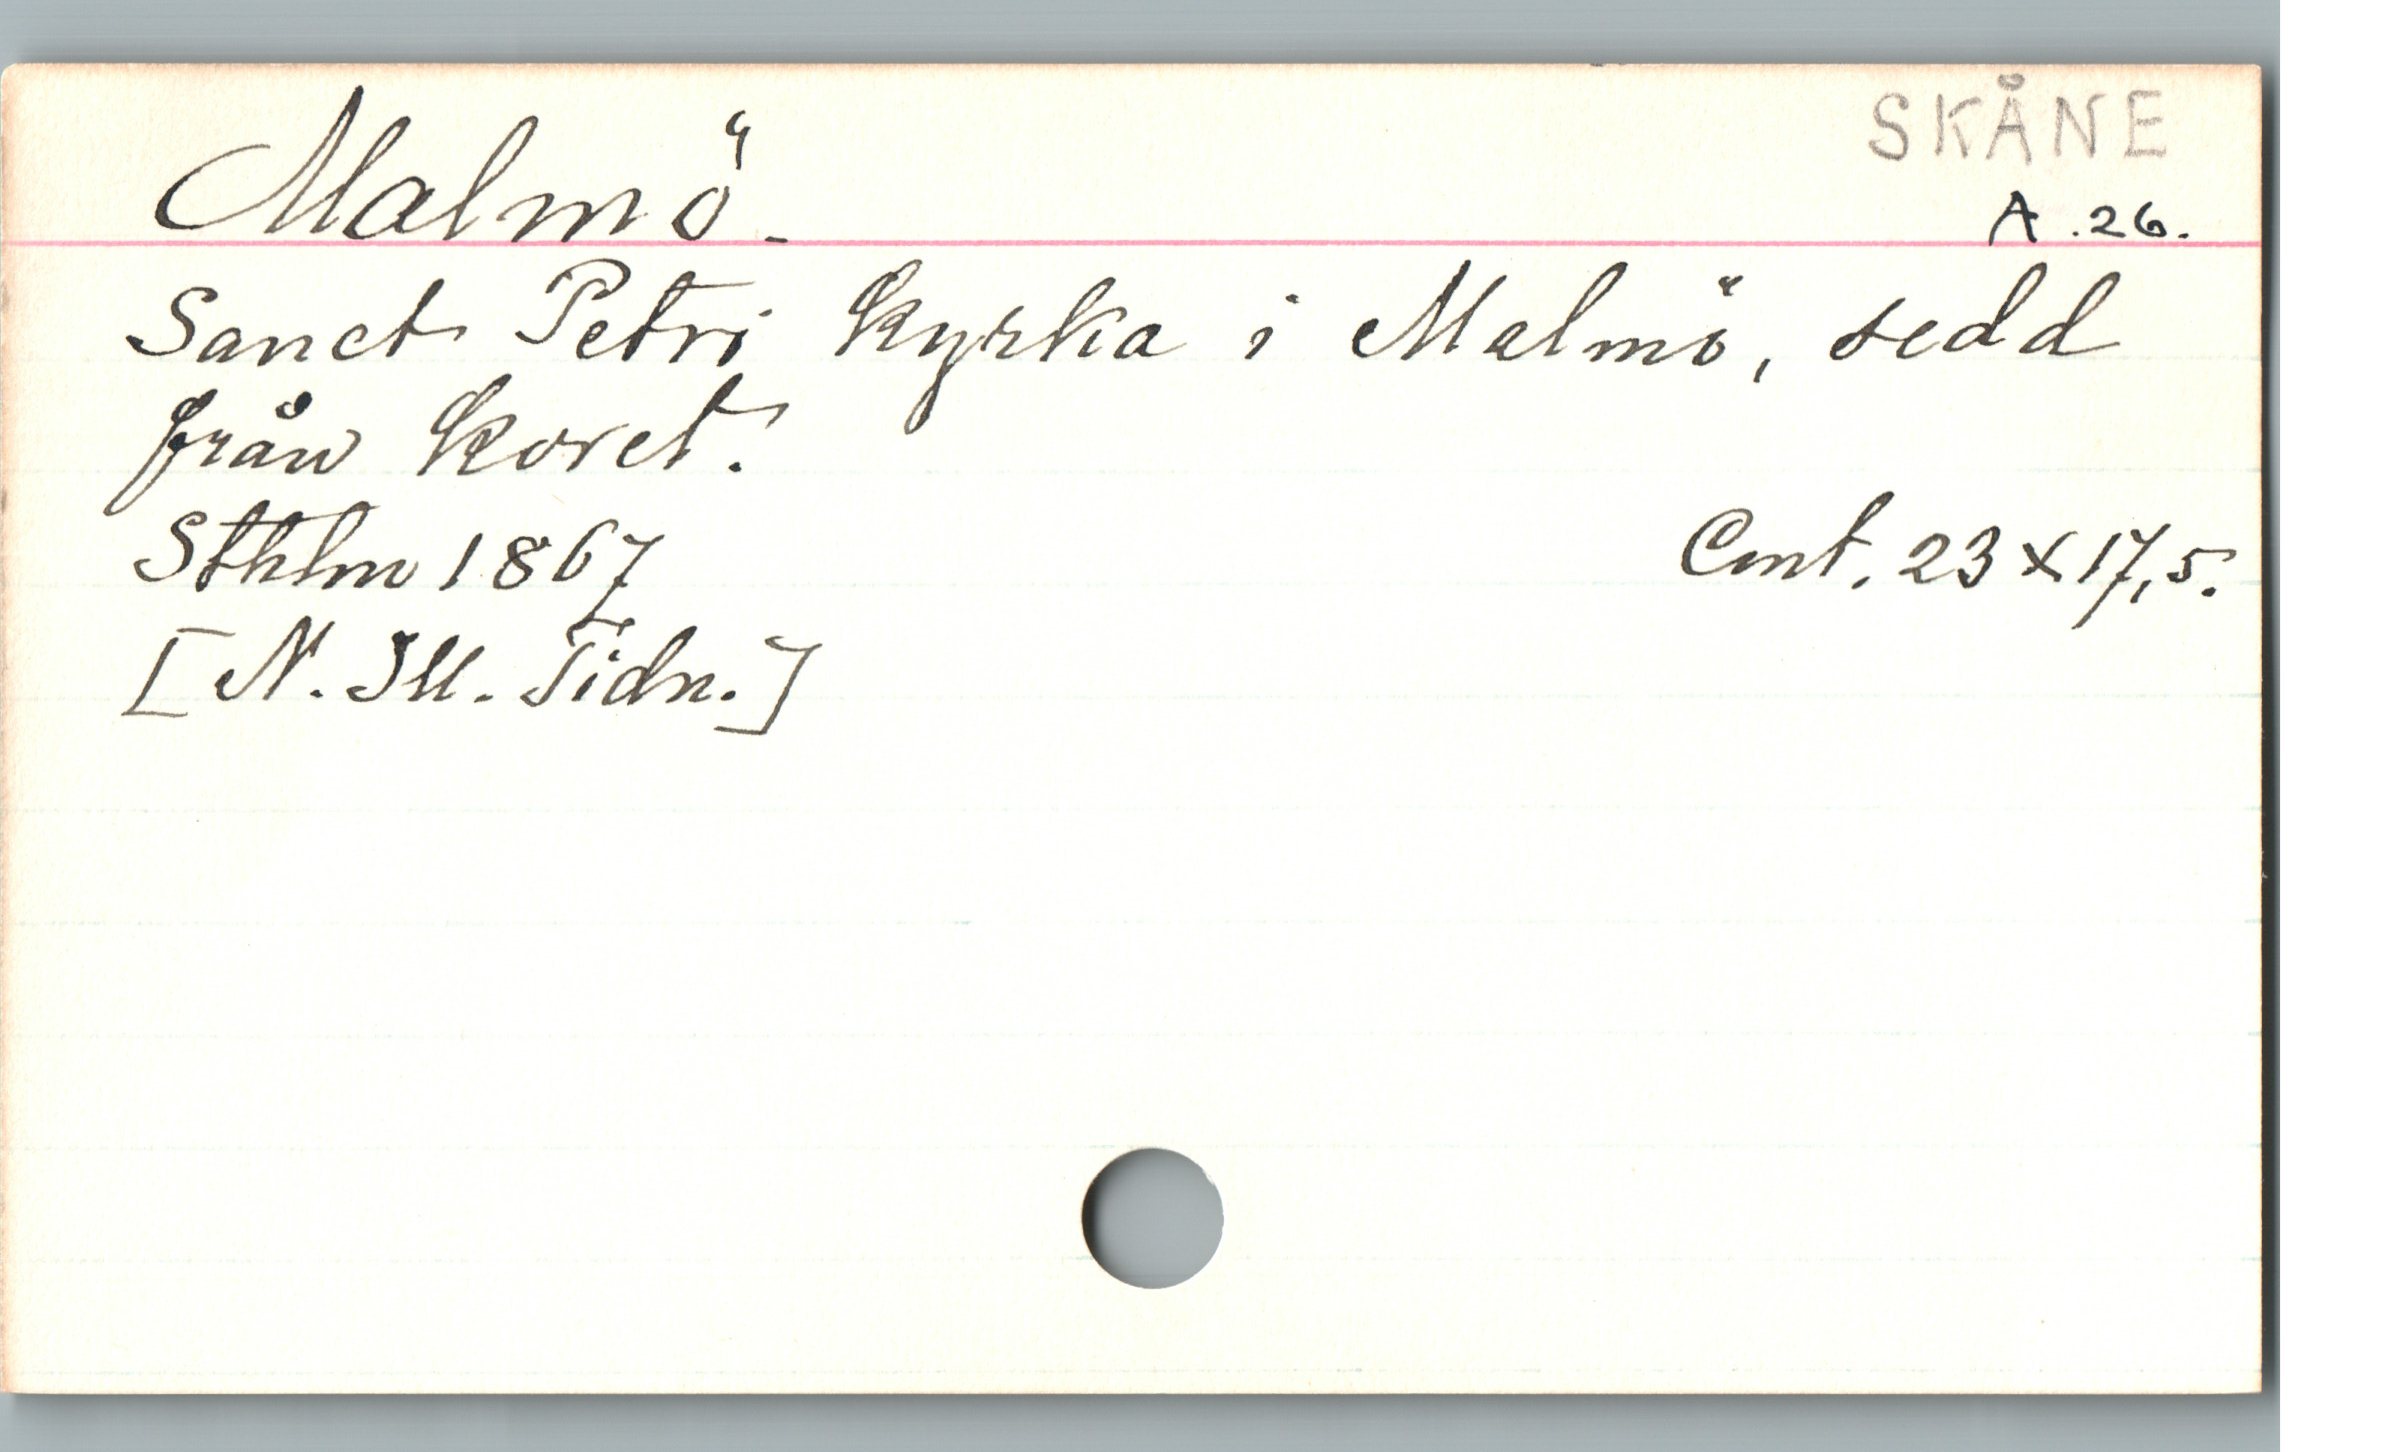 SKÅNE
Malmö.
A.26.
Sanct Petri kyrka i Malmö, sedd
från koret.
Sthlm 1867
Cmt. 23 x 17,5.
[N. Ill. Tidn.]